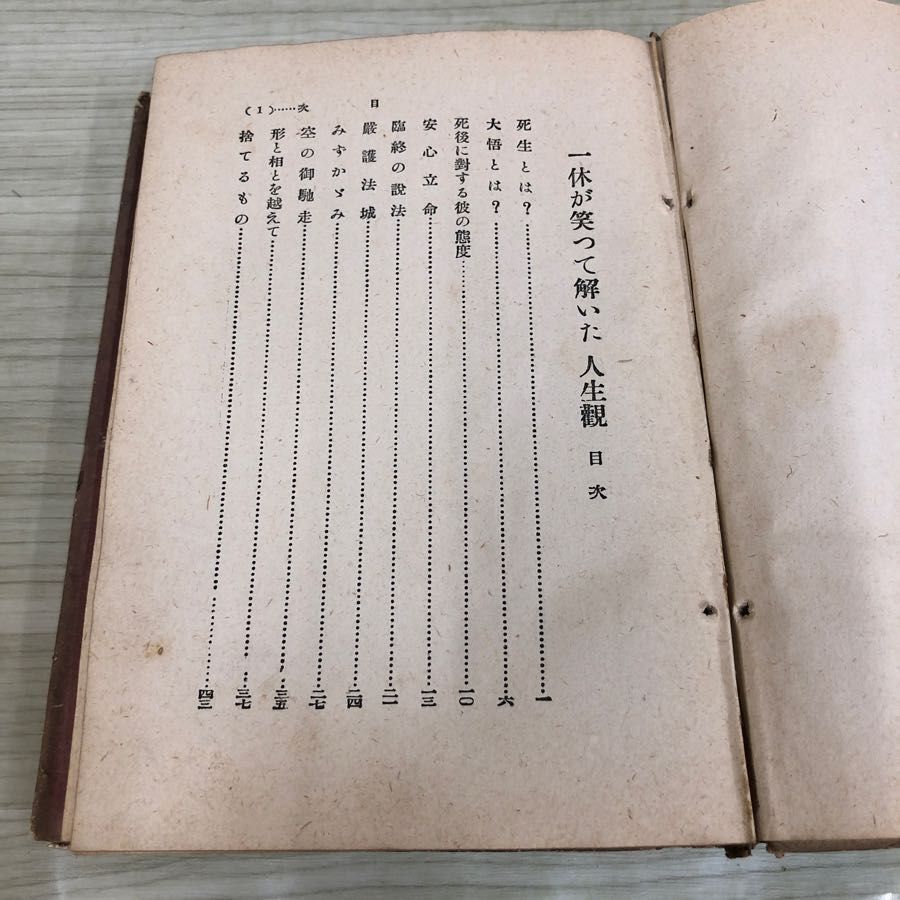 一休が笑つて解いた 人生觀 目次
死生とは？……一
大悟とは？……六
死後に對する彼の態度……一〇
安心立命……一三
臨終の說法……二一
嚴護法城……二四
みずかゞみ……二七
空の御馳走……三五
形と相とを越えて……三七
捨てるもの……四三
目次……(1)